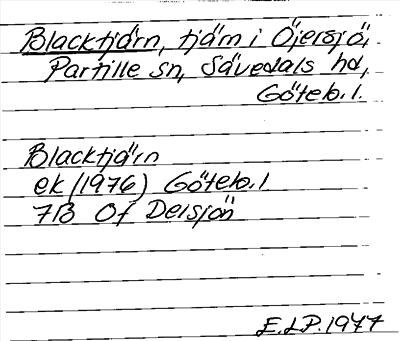 Blacktjärn, tjärn i Öjersjö,
Partille sn, Sävedals hd,
Göteb. l.
Blacktjärn
ek (1976) Göteb. l
7B Of Delsjön
E.L.P. 1977